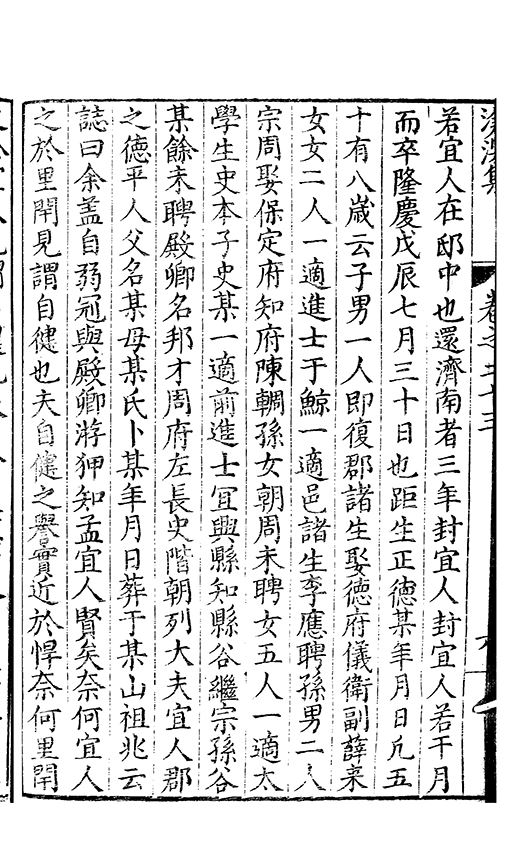 滄溟集 卷之二十三
若宜人在邸中也還濟南者三年封宜人封宜人若干月
而卒隆慶戊辰七月三十日也距生正德某年月日凡五
十有八歲云子男一人即復郡諸生娶德府儀衛副薛来
女女二人一適進士于鯨一適邑諸生李應聘孫男二人
宗周娶保定府知府陳輖孫女朝周未聘女五人一適太
學生史本子史某一適前進士宜興縣知縣谷繼宗孫谷
某餘未聘殿卿名邦才周府左長史階朝列大夫宜人郡
之德平人父名某母某氏卜某年月日葬于某山祖兆云
誌曰余盖自弱冠與殿卿游狎知孟宜人賢矣奈何宜人
之於里閈見謂自健也夫自健之譽實近於悍奈何里閈